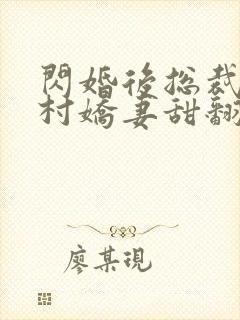 閃婚後總裁
村嬌妻甜翻
廖某現